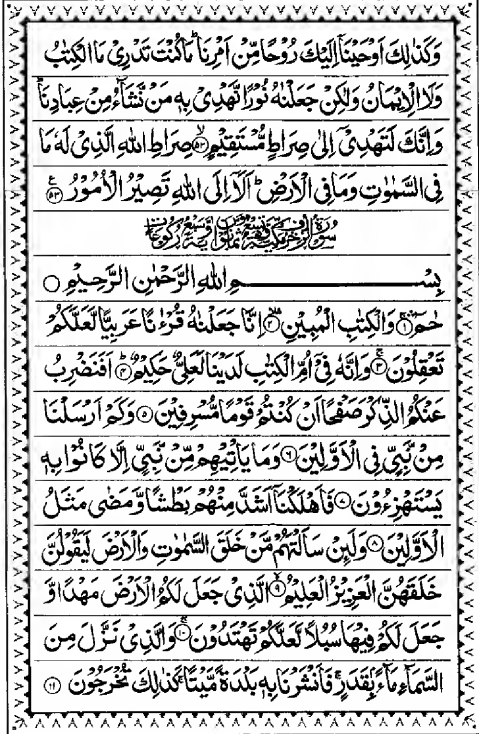 وَكَذٰلِكَ اَوْحَيْنَاۤ اِلَيْكَ رُوْحًا مِّنْ اَمْرِنَا ؕ مَا كُنْتَ تَدْرِىْ مَا الْكِتٰبُ
وَلَا الْاِيْمَانُ وَلٰكِنْ جَعَلْنٰهُ نُوْرًا نَّهْدِىْ بِهٖ مَنْ نَّشَآءُ مِنْ عِبَادِنَا ؕ
وَاِنَّكَ لَتَهْدِىْۤ اِلٰى صِرَاطٍ مُّسْتَقِيْمٍ ۙ﴿۵۲﴾ صِرَاطِ اللّٰهِ الَّذِىْ لَهٗ مَا
فِى السَّمٰوٰتِ وَمَا فِى الْاَرْضِ ؕ اَلَاۤ اِلَى اللّٰهِ تَصِيْرُ الْاُمُوْرُ ﴿۵۳﴾ ع
بِسْمِ اللّٰهِ الرَّحْمٰنِ الرَّحِيْمِ ○
حٰمٓ ﴿۱﴾ وَالْكِتٰبِ الْمُبِيْنِ ﴿۲﴾ اِنَّا جَعَلْنٰهُ قُرْءٰنًا عَرَبِيًّا لَّعَلَّكُمْ
تَعْقِلُوْنَ ﴿۳﴾ وَاِنَّهٗ فِىْۤ اُمِّ الْكِتٰبِ لَدَيْنَا لَعَلِىٌّ حَكِيْمٌ ﴿۴﴾ اَفَنَضْرِبُ
عَنْكُمُ الذِّكْرَ صَفْحًا اَنْ كُنْتُمْ قَوْمًا مُّسْرِفِيْنَ ﴿۵﴾ وَكَمْ اَرْسَلْنَا
مِنْ نَّبِىٍّ فِى الْاَوَّلِيْنَ ﴿۶﴾ وَمَا يَاْتِيْهِمْ مِّنْ نَّبِىٍّ اِلَّا كَانُوْا بِهٖ
يَسْتَهْزِءُوْنَ ﴿۷﴾ فَاَهْلَكْنَاۤ اَشَدَّ مِنْهُمْ بَطْشًا وَّمَضٰى مَثَلُ
الْاَوَّلِيْنَ ﴿۸﴾ وَلَئِنْ سَاَلْتَهُمْ مَّنْ خَلَقَ السَّمٰوٰتِ وَالْاَرْضَ لَيَقُوْلُنَّ
خَلَقَهُنَّ الْعَزِيْزُ الْعَلِيْمُ ۙ﴿۹﴾ الَّذِىْ جَعَلَ لَكُمُ الْاَرْضَ مَهْدًا وَّ
جَعَلَ لَكُمْ فِيْهَا سُبُلًا لَّعَلَّكُمْ تَهْتَدُوْنَ ﴿۱۰﴾ وَالَّذِىْ نَزَّلَ مِنَ
السَّمَآءِ مَآءًۢ بِقَدَرٍ ۚ فَاَنْشَرْنَا بِهٖ بَلْدَةً مَّيْتًا ۚ كَذٰلِكَ تُخْرَجُوْنَ ﴿۱۱﴾